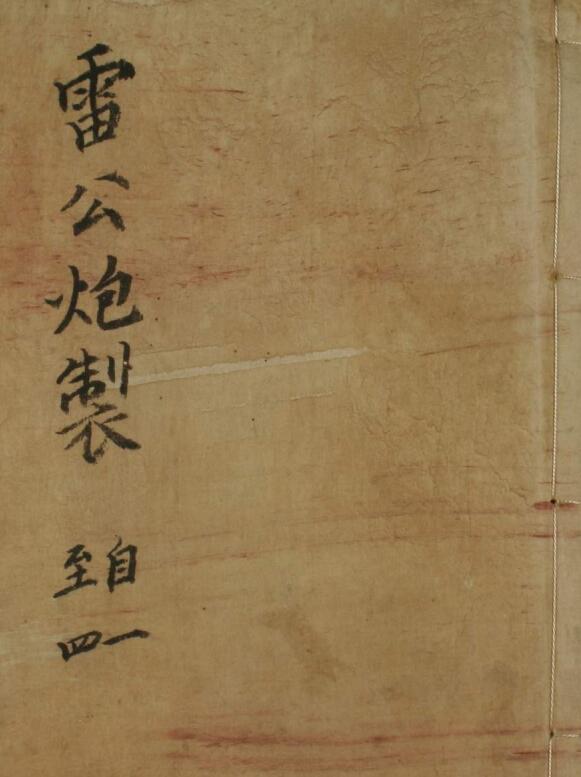 雷公炮製
自一
至四